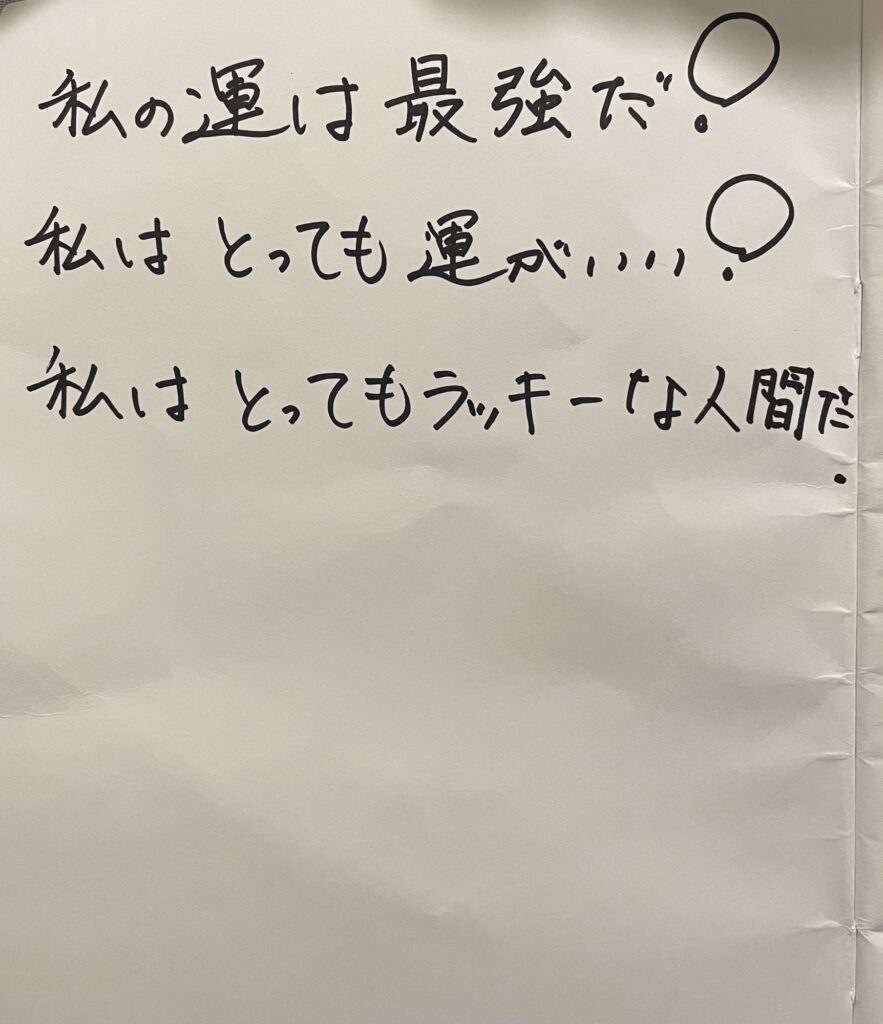 私の運は最強だ!
私はとっても運がいい!
私はとってもラッキーな人間だ.